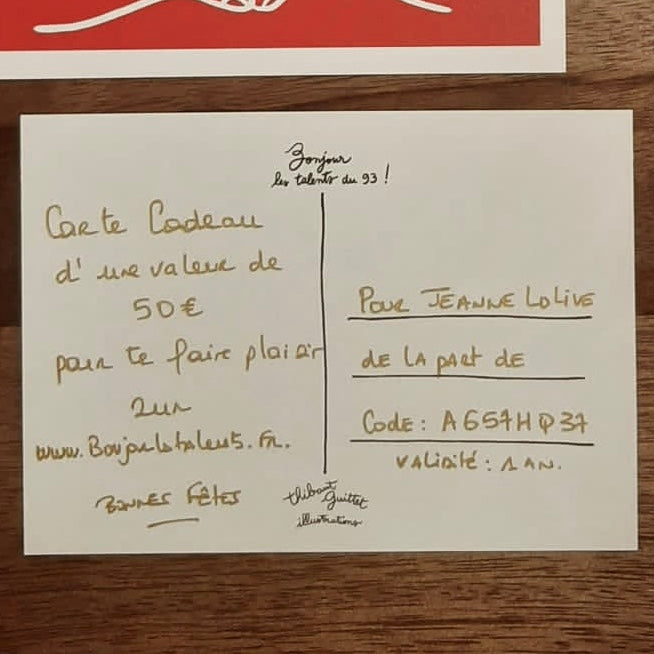 Bonjour
les talents du 93 !
Carte Cadeau
d'une valeur de
50€
pour te faire plaisir
sur
www.Bonjourlestalents.fr.
BONNES FÊTES
POUR JEANNE LOLIVE
DE LA PART DE
CODE : A657HQ37
VALIDITÉ : 1 AN.
thibaut
guittet
illustrations